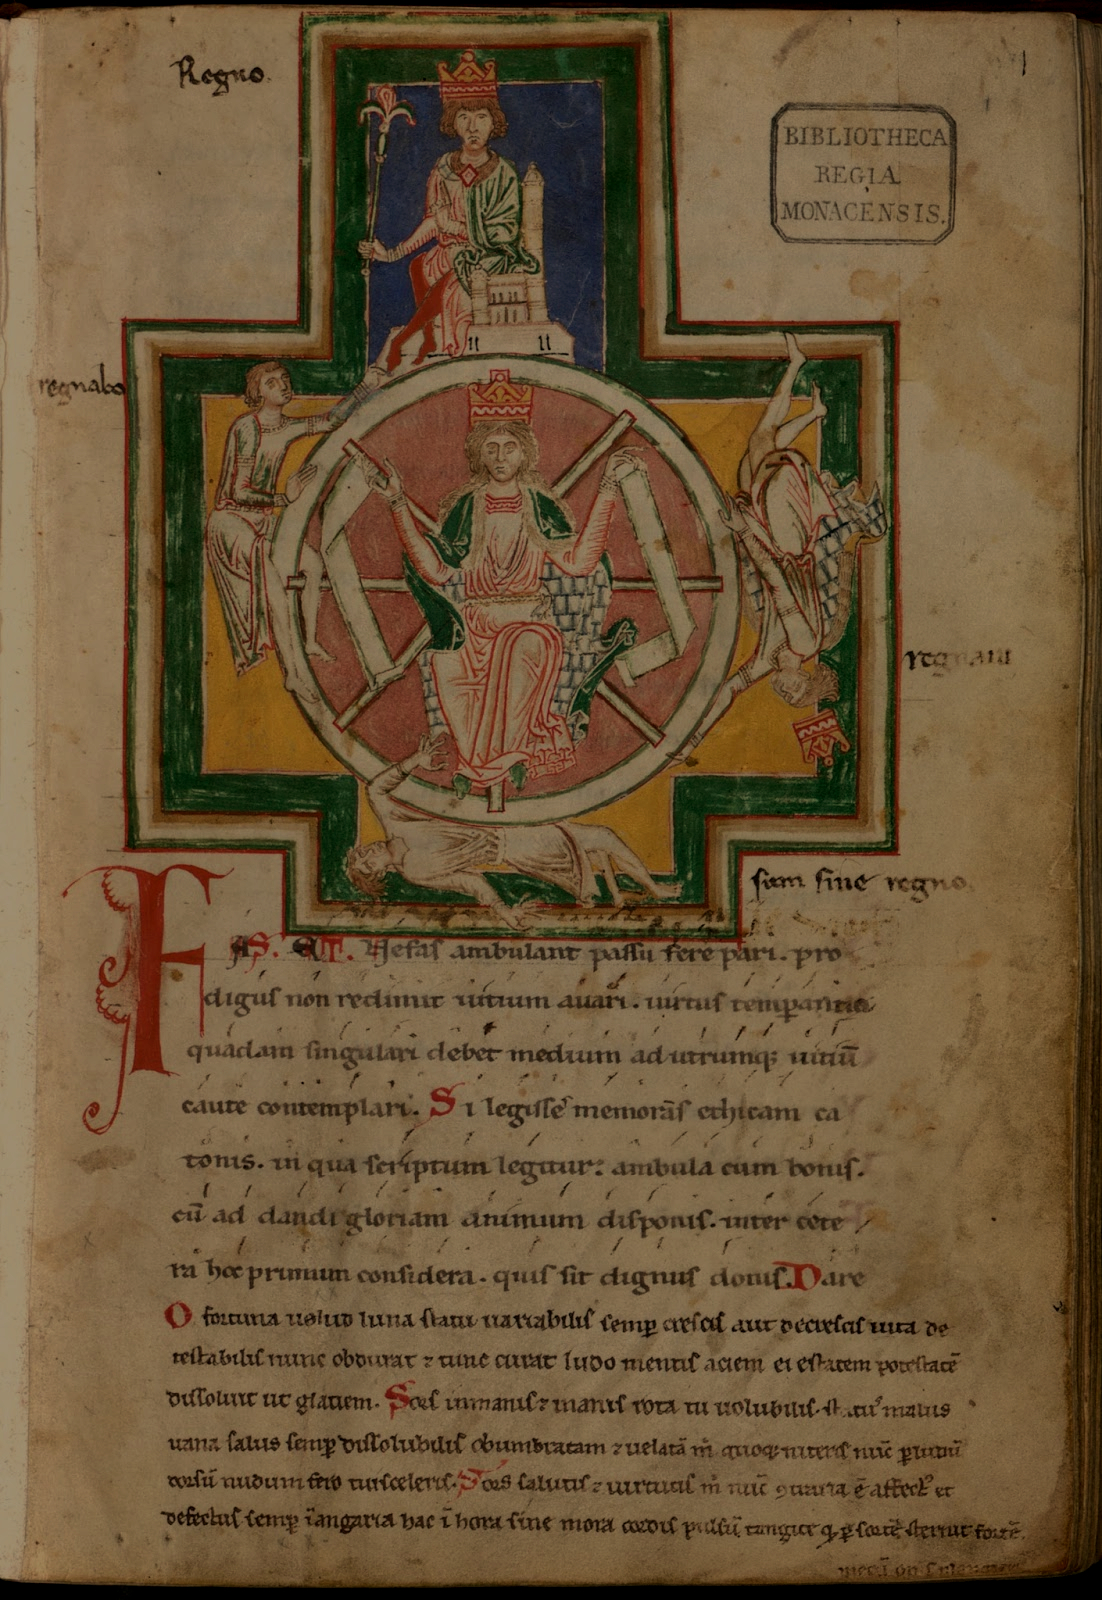 Regno.
1
BIBLIOTHECA
REGIA
MONACENSIS.
regnabo
regnaui
sum sine regno.
FAS. ET. Nefas ambulant passu fere pari. pro
digus non redimit uitium auari. uirtus temperantia
quadam singulari debet medium ad utrumq; uitiū
caute contemplari. Si legisse memoras ethicam ca
tonis. in qua scriptum legitur: ambula cum bonis.
cū ad dandi gloriam animum disponis. inter cete
ra hoc primum considera. quis sit dignus donis. Dare
O fortuna uelud luna statu uariabilis semp crescis aut decrescis uita de
testabilis nunc obdurat ⁊ tunc curat ludo mentis aciem egestatem potestatē
dissoluit ut glaciem. Sors inmanis ⁊ inanis rota tu uolubilis. statꝰ malus
uana salus semp dissolubilis obumbratam ⁊ uelatā m̄ quoq; niteris nūc p ludū
dorsū nudum fero tui sceleris. Sors salutis ⁊ uirtutis m̄ nūc ꝯtraria ē affectꝰ et
defectus semp ī angaria hac ī hora sine mora cordis pulsū tangite q p sortē sternit fortē
mecū omnes plangite